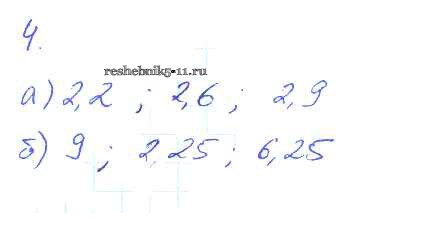 4.
reshebnik5-11.ru
а) 2,2 ; 2,6 ; 2,9
б) 9 ; 2,25 ; 6,25